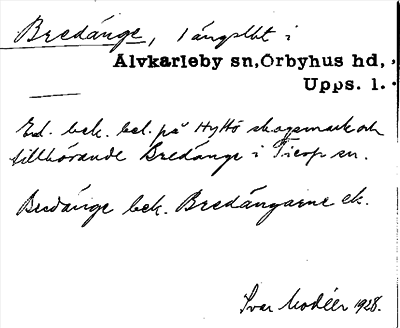 Bredänge, 1 ängslbt i
Älvkarleby sn, Örbyhus hd,
Upps. l.
Ed. bek. bel. på Hyttö skogsmark och
tillhörande Bredänge i Tierp sn.
Bredänge bek. Bredängarne ek.
Ivar Modéer 1928.